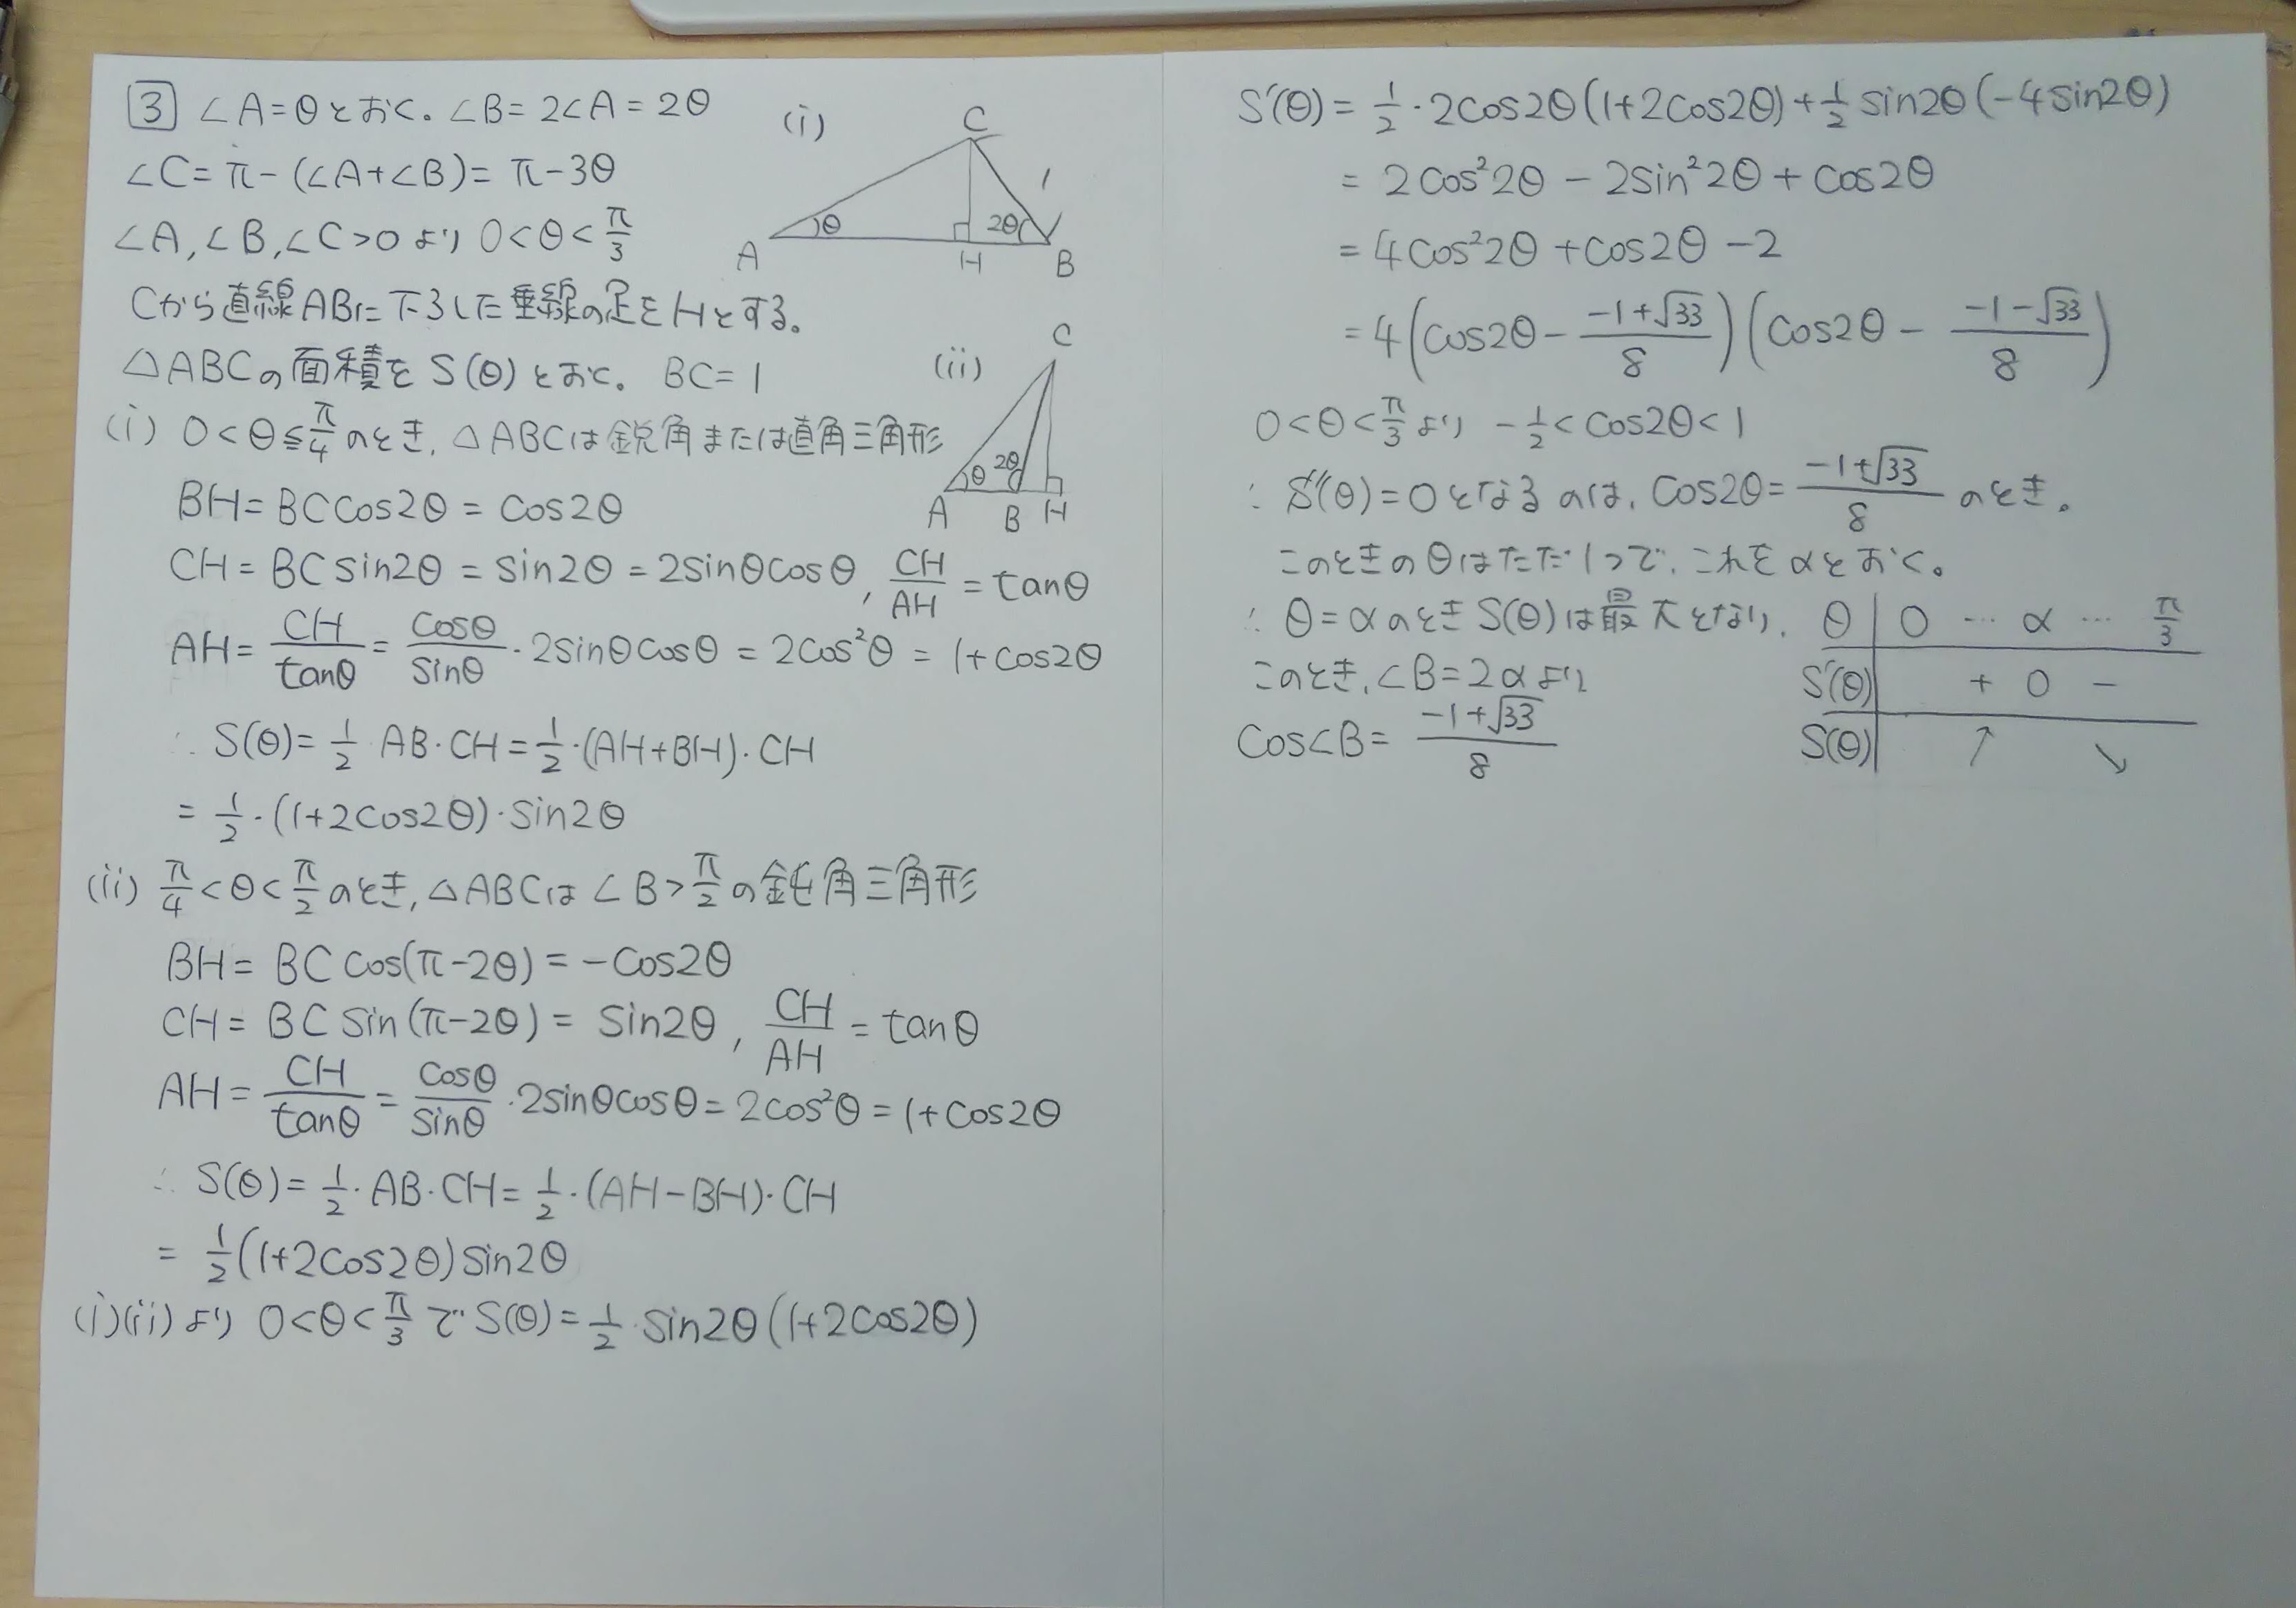 3 ∠A=θとおく。∠B=2∠A=2θ
∠C=π-(∠A+∠B)=π-3θ
∠A,∠B,∠C>0より 0<θ<π/3
Cから直線ABに下ろした垂線の足をHとする。
△ABCの面積をS(θ)とおく。BC=1
(i) 0<θ≦π/4のとき,△ABCは鋭角または直角三角形
BH=BCcos2θ=cos2θ
CH=BCsin2θ=sin2θ=2sinθcosθ, CH/AH=tanθ
AH=CH/tanθ=cosθ/sinθ・2sinθcosθ=2cos²θ=1+cos2θ
∴S(θ)=1/2 AB・CH=1/2・(AH+BH)・CH
=1/2・(1+2cos2θ)・sin2θ
(ii) π/4<θ<π/2のとき,△ABCは∠B>π/2の鈍角三角形
BH=BCcos(π-2θ)=-cos2θ
CH=BCsin(π-2θ)=sin2θ, CH/AH=tanθ
AH=CH/tanθ=cosθ/sinθ・2sinθcosθ=2cos²θ=1+cos2θ
∴S(θ)=1/2・AB・CH=1/2・(AH-BH)・CH
=1/2(1+2cos2θ)sin2θ
(i)(ii)より 0<θ<π/3でS(θ)=1/2・sin2θ(1+2cos2θ)
(i)
C
1
θ
2θ
A H B
(ii)
C
θ 2θ
A B H
S'(θ)=1/2・2cos2θ(1+2cos2θ)+1/2 sin2θ(-4sin2θ)
=2cos²2θ-2sin²2θ+cos2θ
=4cos²2θ+cos2θ-2
=4(cos2θ-(-1+√33)/8)(cos2θ-(-1-√33)/8)
0<θ<π/3より -1/2<cos2θ<1
∴S'(θ)=0となるのは,cos2θ=(-1+√33)/8 のとき。
このときのθはただ1つで,これをαとおく。
∴θ=αのときS(θ)は最大となり,
このとき,∠B=2αより
cos∠B=(-1+√33)/8
θ 0 … α … π/3
S'(θ) + 0 -
S(θ) ↗ ↘